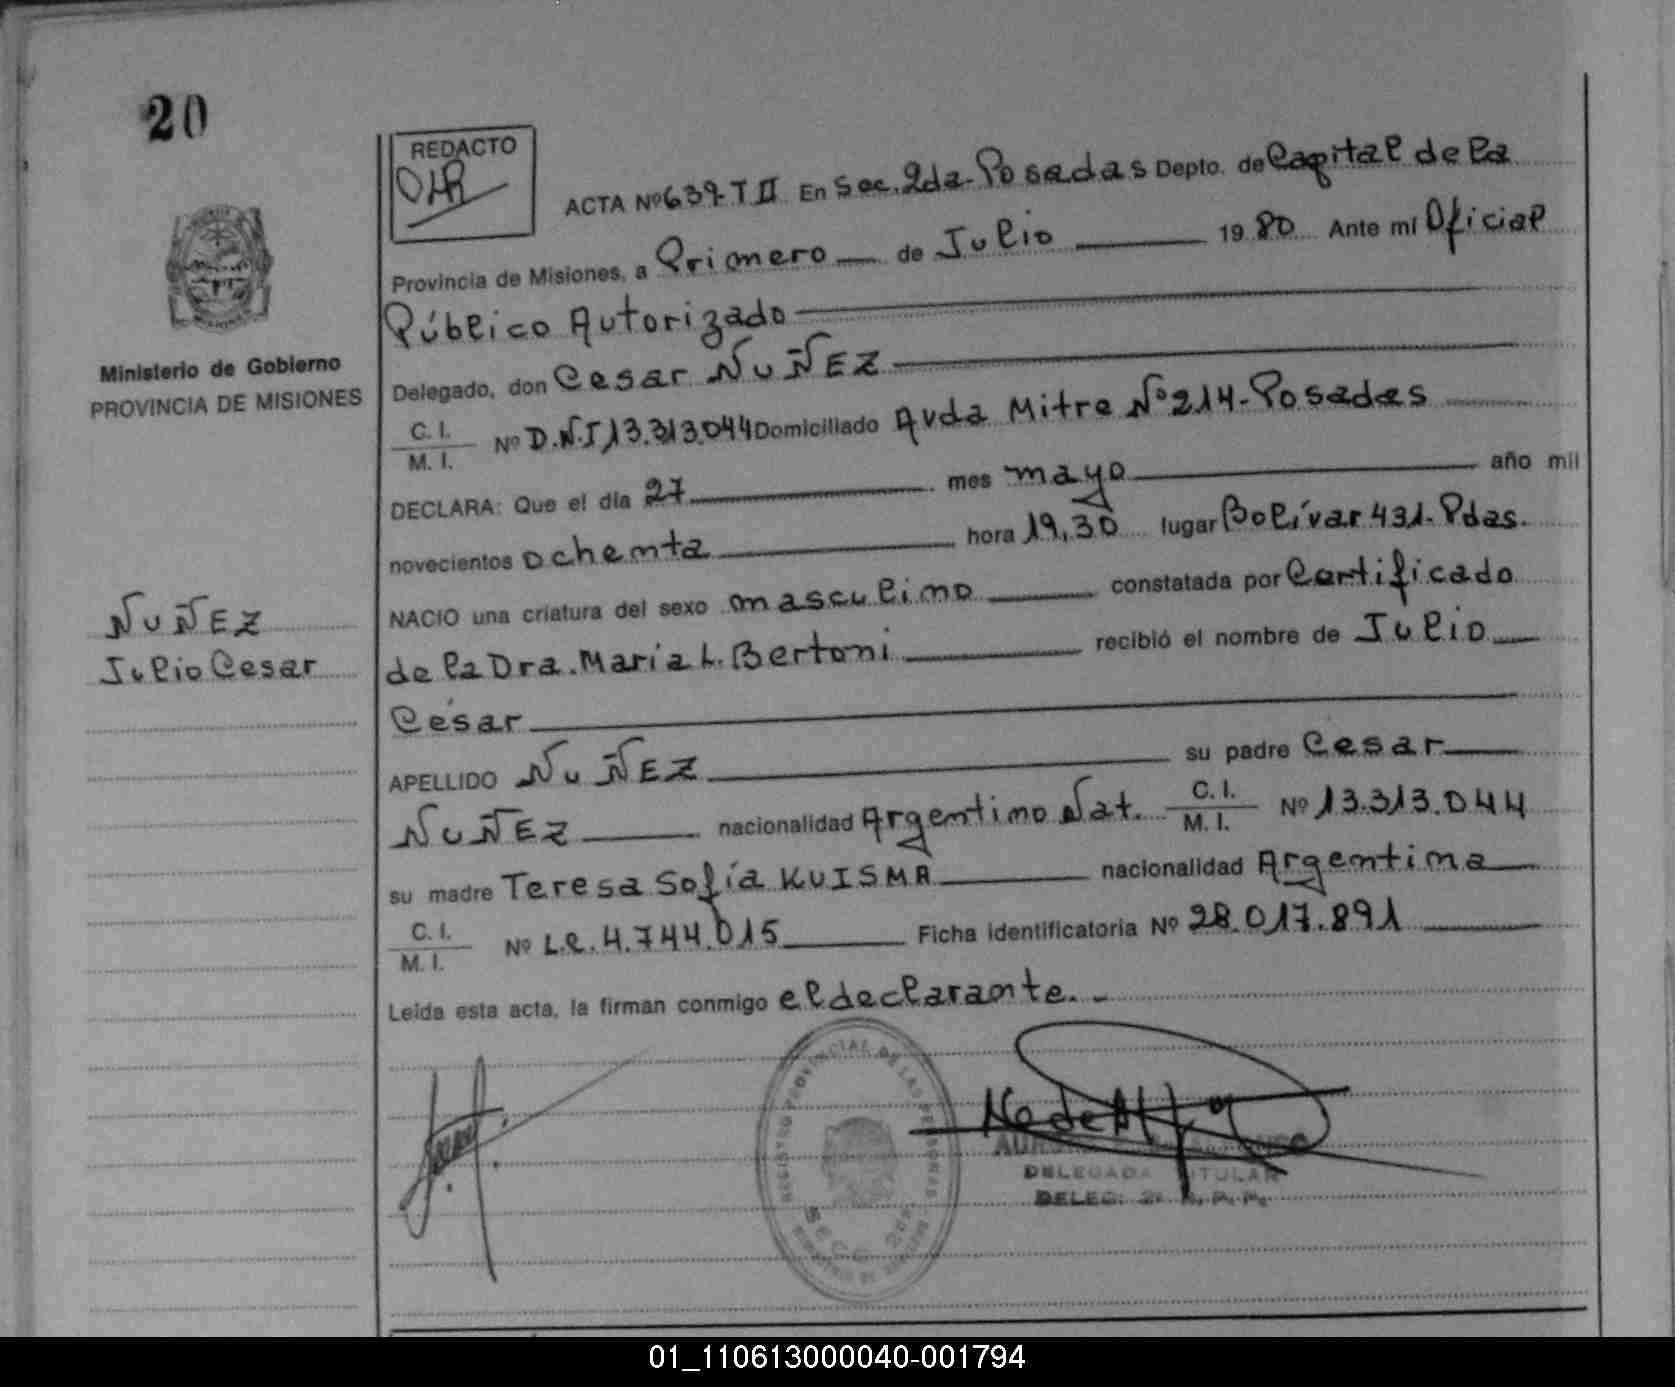 20
REDACTO
Ministerio de Gobierno
PROVINCIA DE MISIONES
NUÑEZ
Julio Cesar
ACTA Nº 639-T II En Sec. 2da-Posadas Depto. de Capital de la
Provincia de Misiones, a Primero de Julio 1980 Ante mí Oficial
Público Autorizado
Delegado, don Cesar NUÑEZ
C. I.
M. I. Nº D.N.I 13.313.044 Domiciliado Avda Mitre Nº 214-Posadas
DECLARA: Que el día 27 mes mayo año mil
novecientos ochenta hora 19,30 lugar Bolívar 431-Pdas.
NACIO una criatura del sexo masculino constatada por Certificado
de la Dra. Maria L. Bertoni recibió el nombre de Julio
César
APELLIDO NUÑEZ su padre Cesar
NUÑEZ nacionalidad Argentino Nat. C. I.
M. I. Nº 13.313.044
su madre Teresa Sofía KUISMA nacionalidad Argentina
C. I.
M. I. Nº L.C. 4.744.015 Ficha identificatoria Nº 28.017.891
Leída esta acta, la firman conmigo el declarante.-
REGISTRO PROVINCIAL DE LAS PERSONAS
SECC. 2da
DELEGADA TITULAR
01_110613000040-001794